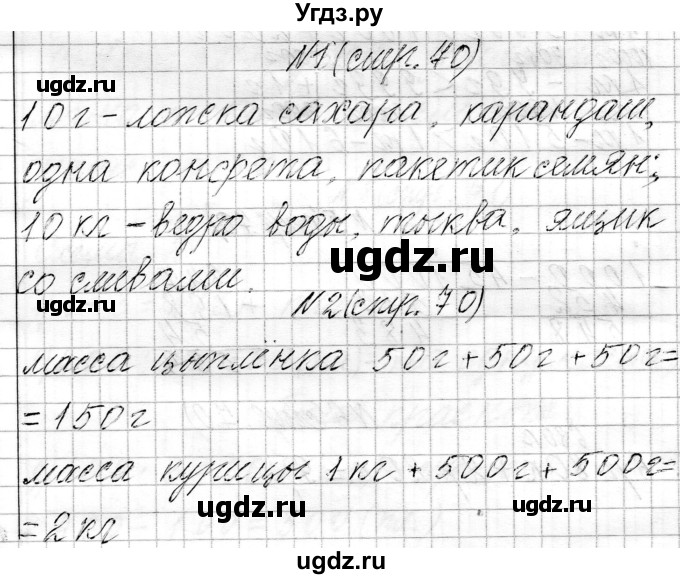 Угдз.ру
ugdz.ru
ugdz.ru
N1(стр. 70)
10г - ложка сахара, карандаш,
одна конфета, пакетик семян;
10 кг - ведро воды, тыква, ящик
со сливами.
ugdz.ru
ugdz.ru
ugdz.ru
N2(стр. 70)
масса цыплёнка 50г + 50г + 50г =
= 150г
масса курицы 1 кг + 500г + 500г =
= 2 кг
ugdz.ru
ugdz.ru
ugdz.ru